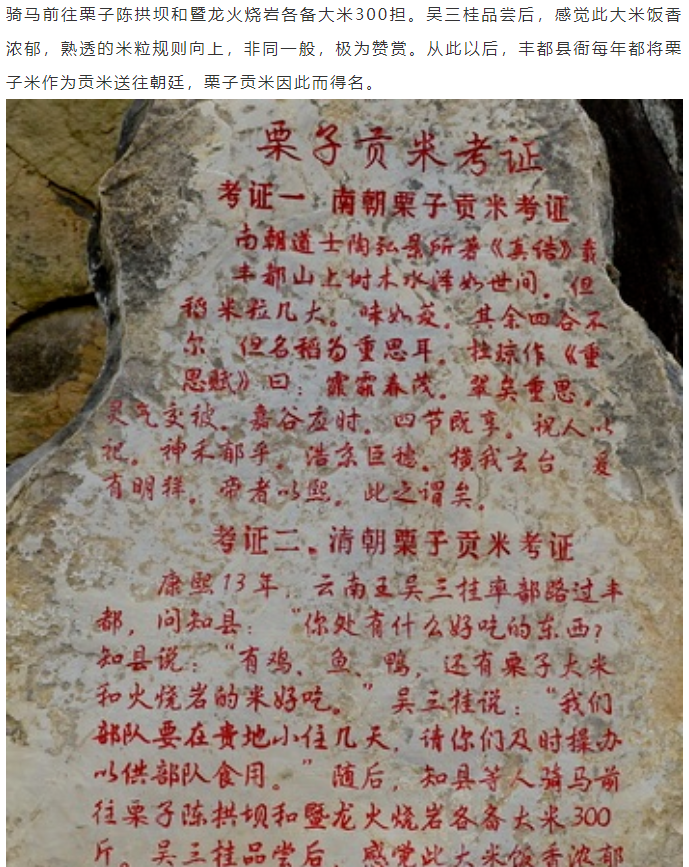 骑马前往栗子陈拱坝和暨龙火烧岩各备大米300担。吴三桂品尝后，感觉此大米饭香
浓郁，熟透的米粒规则向上，非同一般，极为赞赏。从此以后，丰都县衙每年都将栗
子米作为贡米送往朝廷，栗子贡米因此而得名。
栗子贡米考证
考证一、南朝栗子贡米考证
南朝道士陶弘景所著《真诰》载
丰都山上树木水泽如世间。但
稻米粒几大。味如菱。其余四谷不
尔 但名稻为重思耳。杜琼作《重
思赋》曰：霏霏春茂。翠矣重思。
灵气交被。嘉谷应时。四节既享。祝人以
祀。神禾郁乎。浩京巨穗。横我玄台 爰
有明祥。帝者以熙。此之谓矣。
考证二、清朝栗子贡米考证
康熙13年，云南王吴三桂率部路过丰
都，问知县：“你处有什么好吃的东西？
知县说：“有鸡、鱼、鸭，还有栗子大米
和火烧岩的米好吃。”吴三桂说：“我们
部队要在贵地小住几天，请你们及时操办
以供部队食用。”随后，知县等人骑马前
往栗子陈拱坝和暨龙火烧岩各备大米300
斤。吴三桂品尝后，感觉此大米饭香浓郁